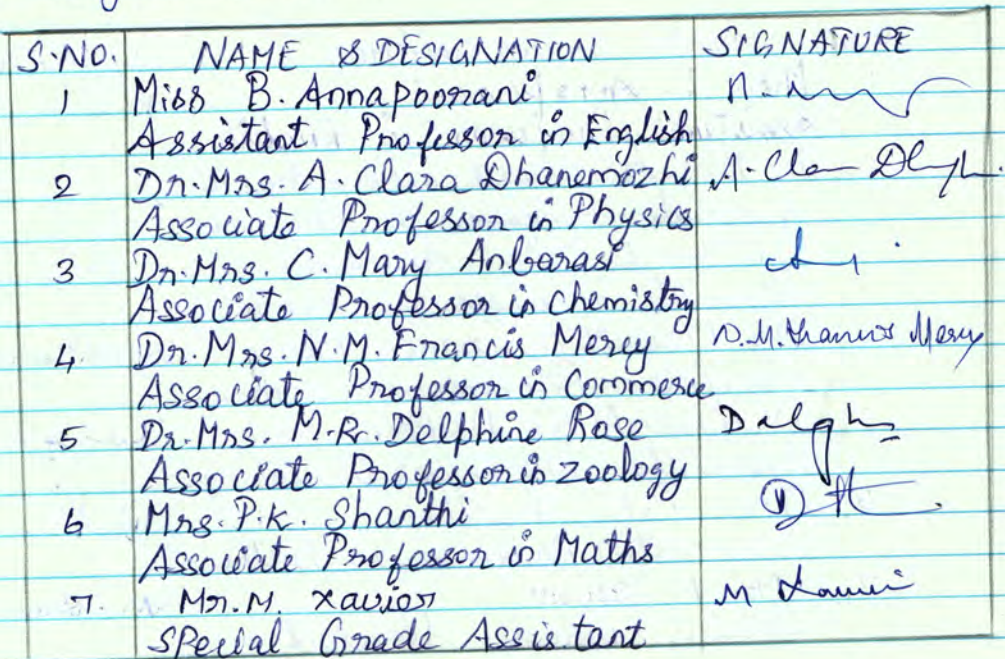 S.NO. NAME & DESIGNATION SIGNATURE
1 Miss B. Annapoorani
Assistant Professor in English
2 Dr.Mrs. A. Clara Dhanemozhi
Associate Professor in Physics
3 Dr.Mrs. C. Mary Anbarasi
Associate Professor in Chemistry
4 Dr.Mrs. N.M. Francis Mercy N.M. Francis Mercy
Associate Professor in Commerce
5 Dr.Mrs. M.R. Delphine Rose
Associate Professor in Zoology
6 Mrs. P.K. Shanthi
Associate Professor in Maths
7. Mr. M. Xavier M Xavier
Special Grade Assistant